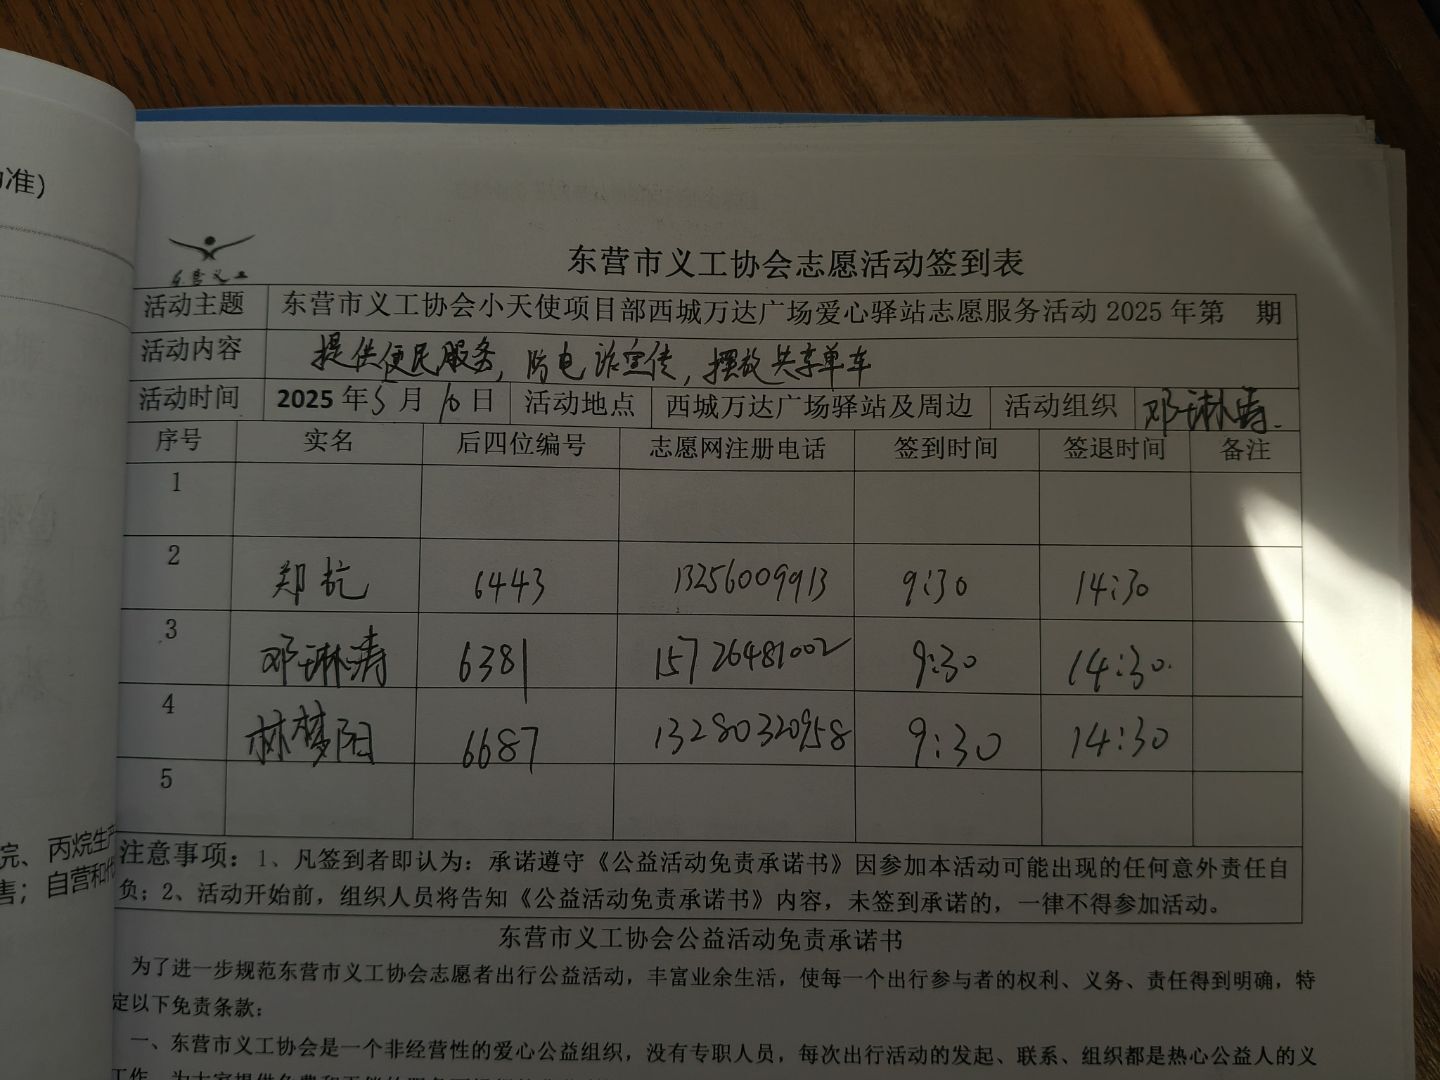 为准)
东营义工
东营市义工协会志愿活动签到表
活动主题 东营市义工协会小天使项目部西城万达广场爱心驿站志愿服务活动 2025 年第 期
活动内容 提供便民服务，防电诈宣传，摆放共享单车
活动时间 2025 年 5 月 10 日 活动地点 西城万达广场驿站及周边 活动组织 邓琳涛
序号 实名 后四位编号 志愿网注册电话 签到时间 签退时间 备注
1
2 郑杭 6443 13256009913 9:30 14:30
3 邓琳涛 6381 15726481002 9:30 14:30
4 林梦阳 6687 13280320958 9:30 14:30
5
注意事项：1、凡签到者即认为：承诺遵守《公益活动免责承诺书》因参加本活动可能出现的任何意外责任自
负；2、活动开始前，组织人员将告知《公益活动免责承诺书》内容，未签到承诺的，一律不得参加活动。
东营市义工协会公益活动免责承诺书
为了进一步规范东营市义工协会志愿者出行公益活动，丰富业余生活，使每一个出行参与者的权利、义务、责任得到明确，特
定以下免责条款：
一、东营市义工协会是一个非经营性的爱心公益组织，没有专职人员，每次出行活动的发起、联系、组织都是热心公益人的义
烷、丙烷生产
害；自营和代